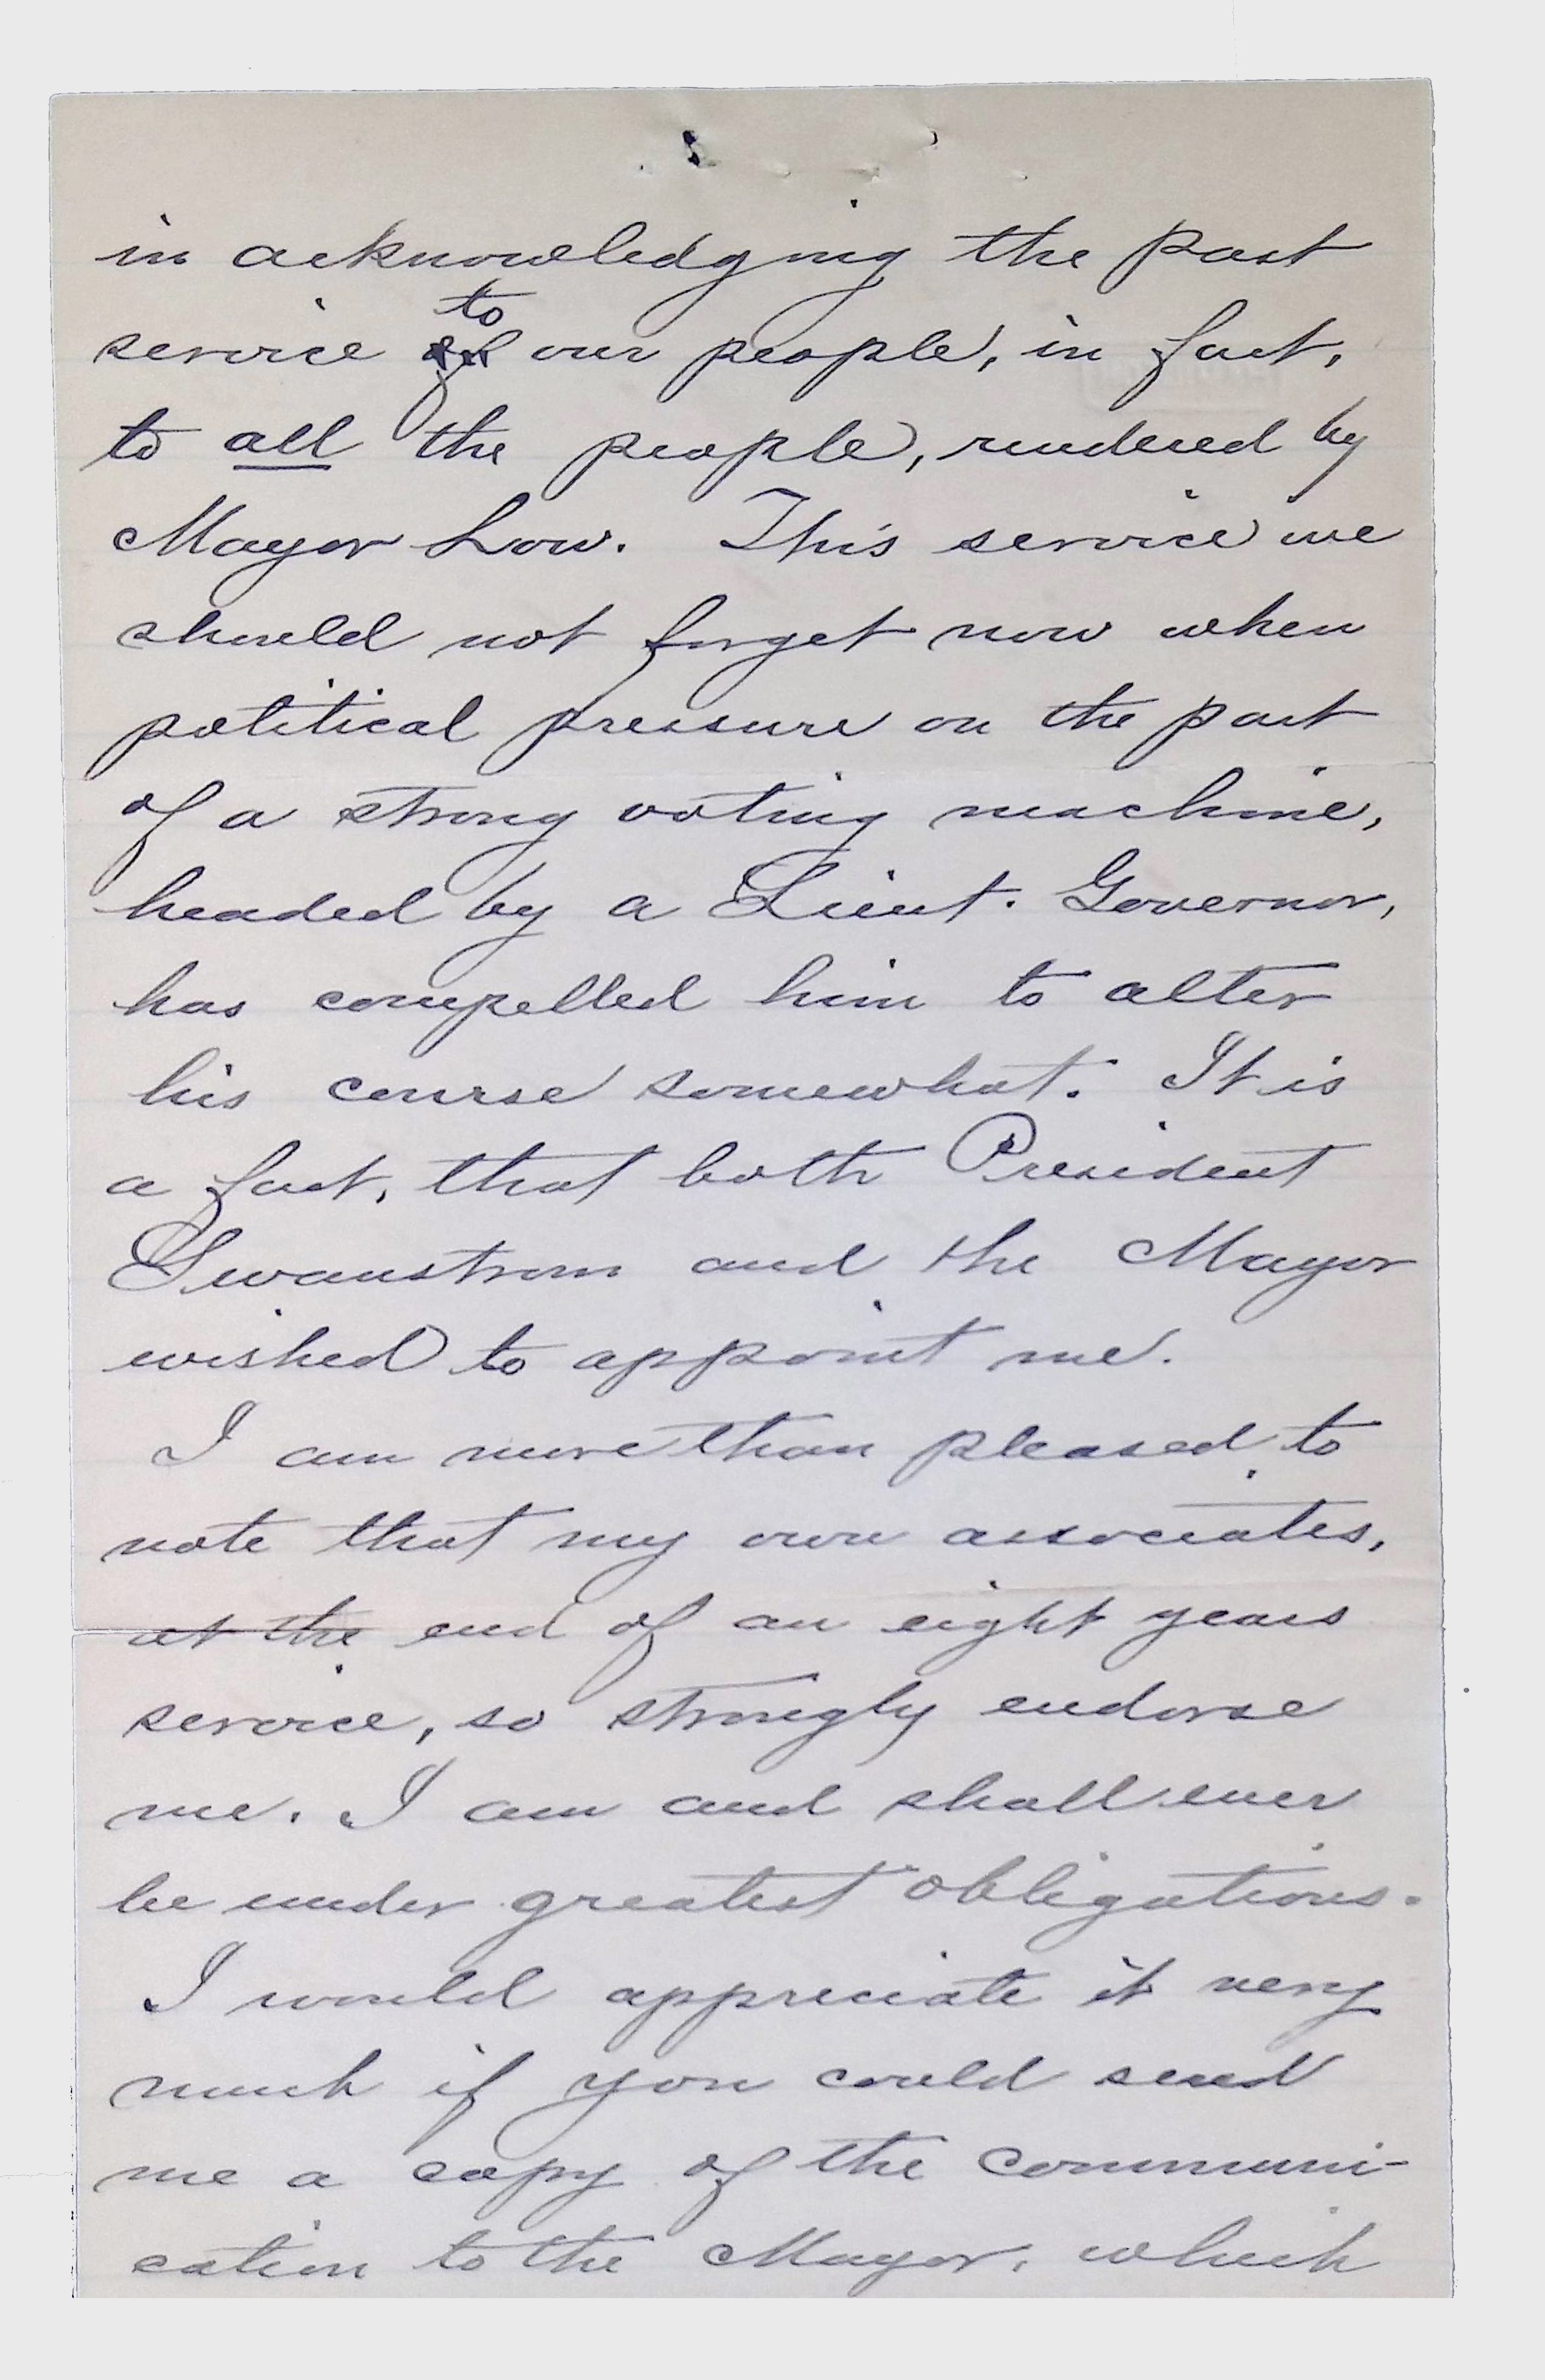 in acknowledging the past
to
service of our people, in fact,
to all the people, rendered by
Mayor Low. This service we
should not forget now when
political pressure on the part
of a strong voting machine,
headed by a Lieut. Governor,
has compelled him to alter
his course somewhat. It is
a fact, that both President
Swanstrom and the Mayor
wished to appoint me.
I am more than pleased to
note that my own associates,
at the end of an eight years
service, so strongly endorse
me. I am and shall ever
be under greatest obligations.
I would appreciate it very
much if you could send
me a copy of the communi-
cation to the Mayor, which